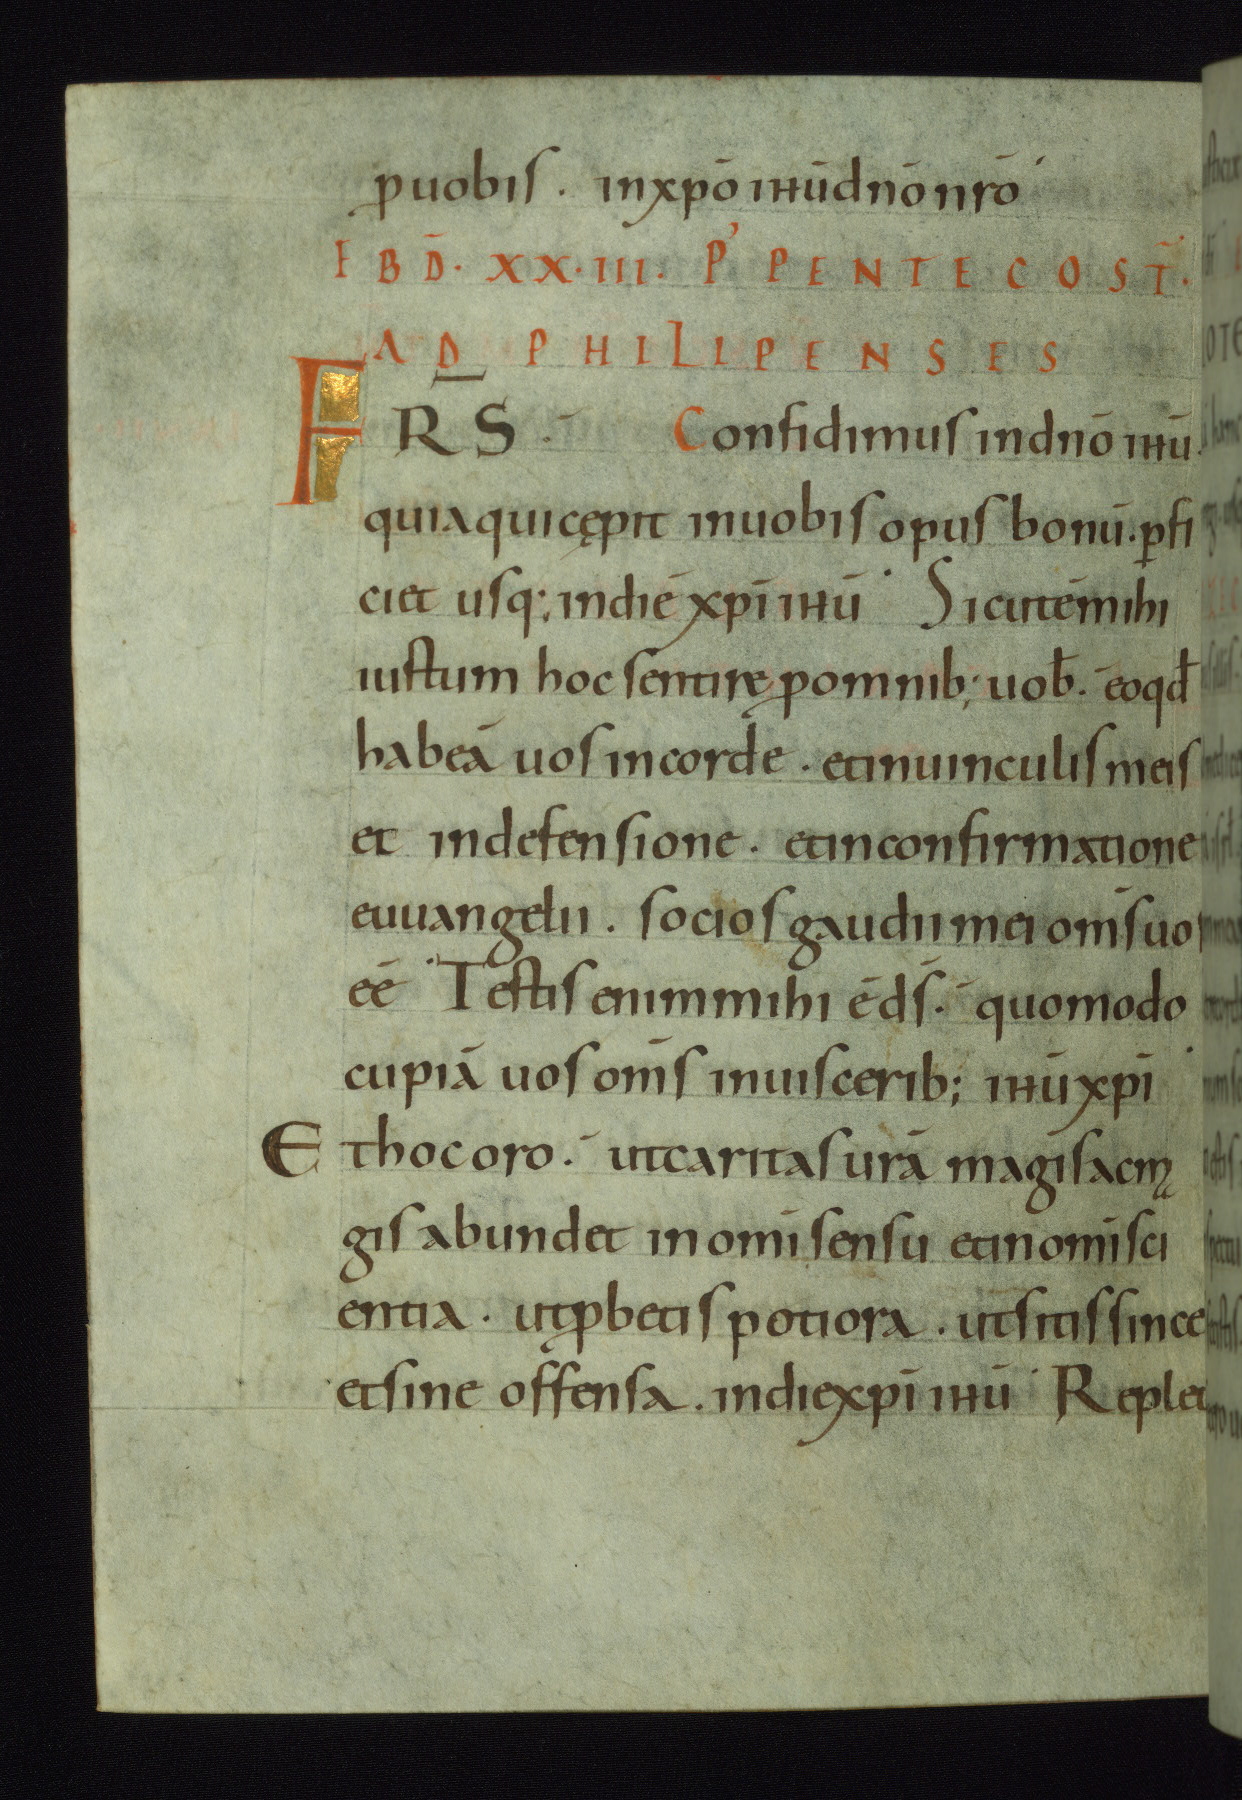 ꝓuobis . inxpō ihūdnōnrō
EBD̄. XX.III. P' PENTECOST̄.
AD PHILIPENSES
FRS . Confidimus indnō ihū.
quiaquicępit inuobis opus bonū. ꝑfi
ciet usq; indiē xpī ihū Sicutēmihi
iustum hoc sentirę ꝓomnib; uob̄. eoqd̄
habeā uos incorde . etinuinculis meis
et indefensione . etinconfirmatione
euuangelii . socios gaudii mei om̄s uos
eē Testis enimmihi ēd̄s. quomodo
cupiā uos om̄s inuiscerib; ihū xpī
Ethocoro. utcaritas urā magis acmę
gis abundet inomī sensu etinomī sci
entia . utꝓbetis potiora . utsitis since
etsine offensa . indiexpī ihū Replet